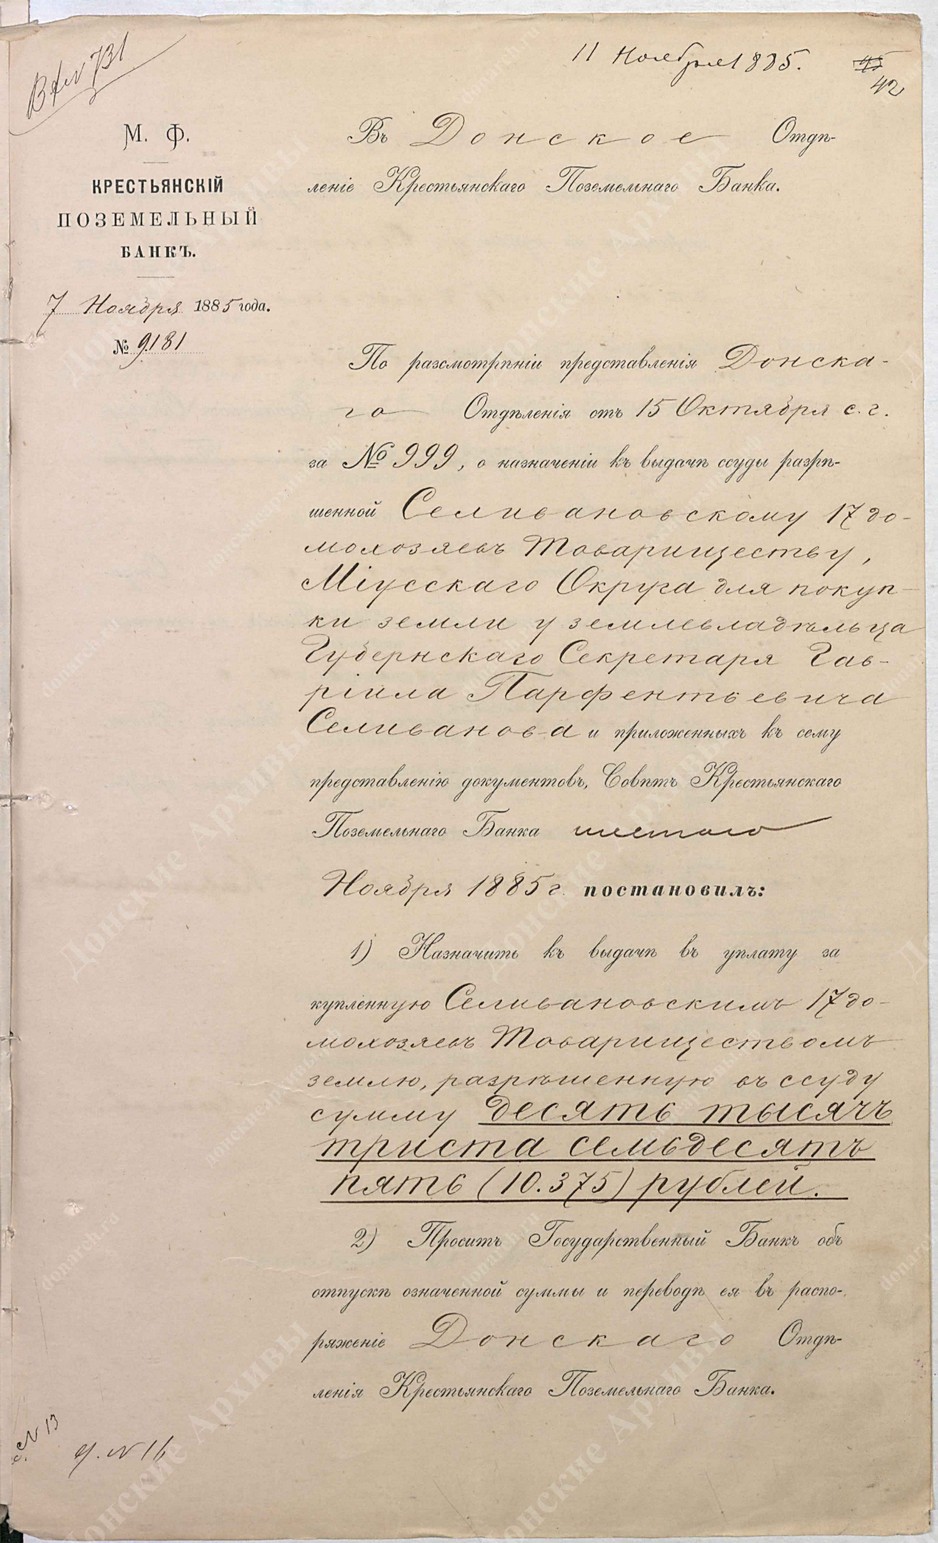 Вх № 731
11 Ноября 1885.
45
42
М. Ф.
КРЕСТЬЯНСКІЙ
ПОЗЕМЕЛЬНЫЙ
БАНКЪ.
7 Ноября 1885 года.
№ 9181
Въ Донское Отдѣ-
леніе Крестьянскаго Поземельнаго Банка.
По разсмотрѣніи представленія Донска-
го Отдѣленія отъ 15 Октября с. г.
за № 999, о назначеніи къ выдачѣ ссуды разрѣ-
шенной Селивановскому 17 до-
мохозяевъ Товариществу,
Міусскаго Округа для покуп-
ки земли у землевладѣльца
Губернскаго Секретаря Гав-
ріила Парфентьевича
Селиванова и приложенныхъ къ сему
представленію документовъ, Совѣтъ Крестьянскаго
Поземельнаго Банка шестого
Ноября 1885 г. постановилъ:
1) Назначить къ выдачѣ въ уплату за
купленную Селивановскимъ 17 до-
мохозяевъ Товариществомъ
землю, разрѣшенную въ ссуду
сумму десять тысячъ
триста семьдесятъ
пять (10.375) рублей.
2) Проситъ Государственный Банкъ объ
отпускѣ означенной суммы и переводѣ ея въ распо-
ряженіе Донскаго Отдѣ-
ленія Крестьянскаго Поземельнаго Банка.
с. № 13
д. № 16